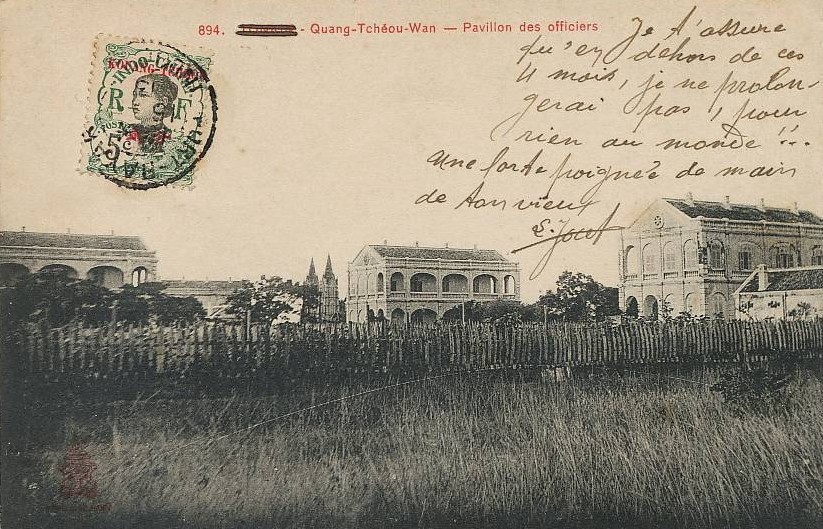 894. - Quang-Tchéou-Wan — Pavillon des officiers
Je t'assure
qu'en dehors de ces
4 mois, je ne prolon-
gerai pas, pour
rien au monde !!..
Une forte poignée de main
de ton vieux
KOUANG-TCHÉOU
INDO-CHINE
R F